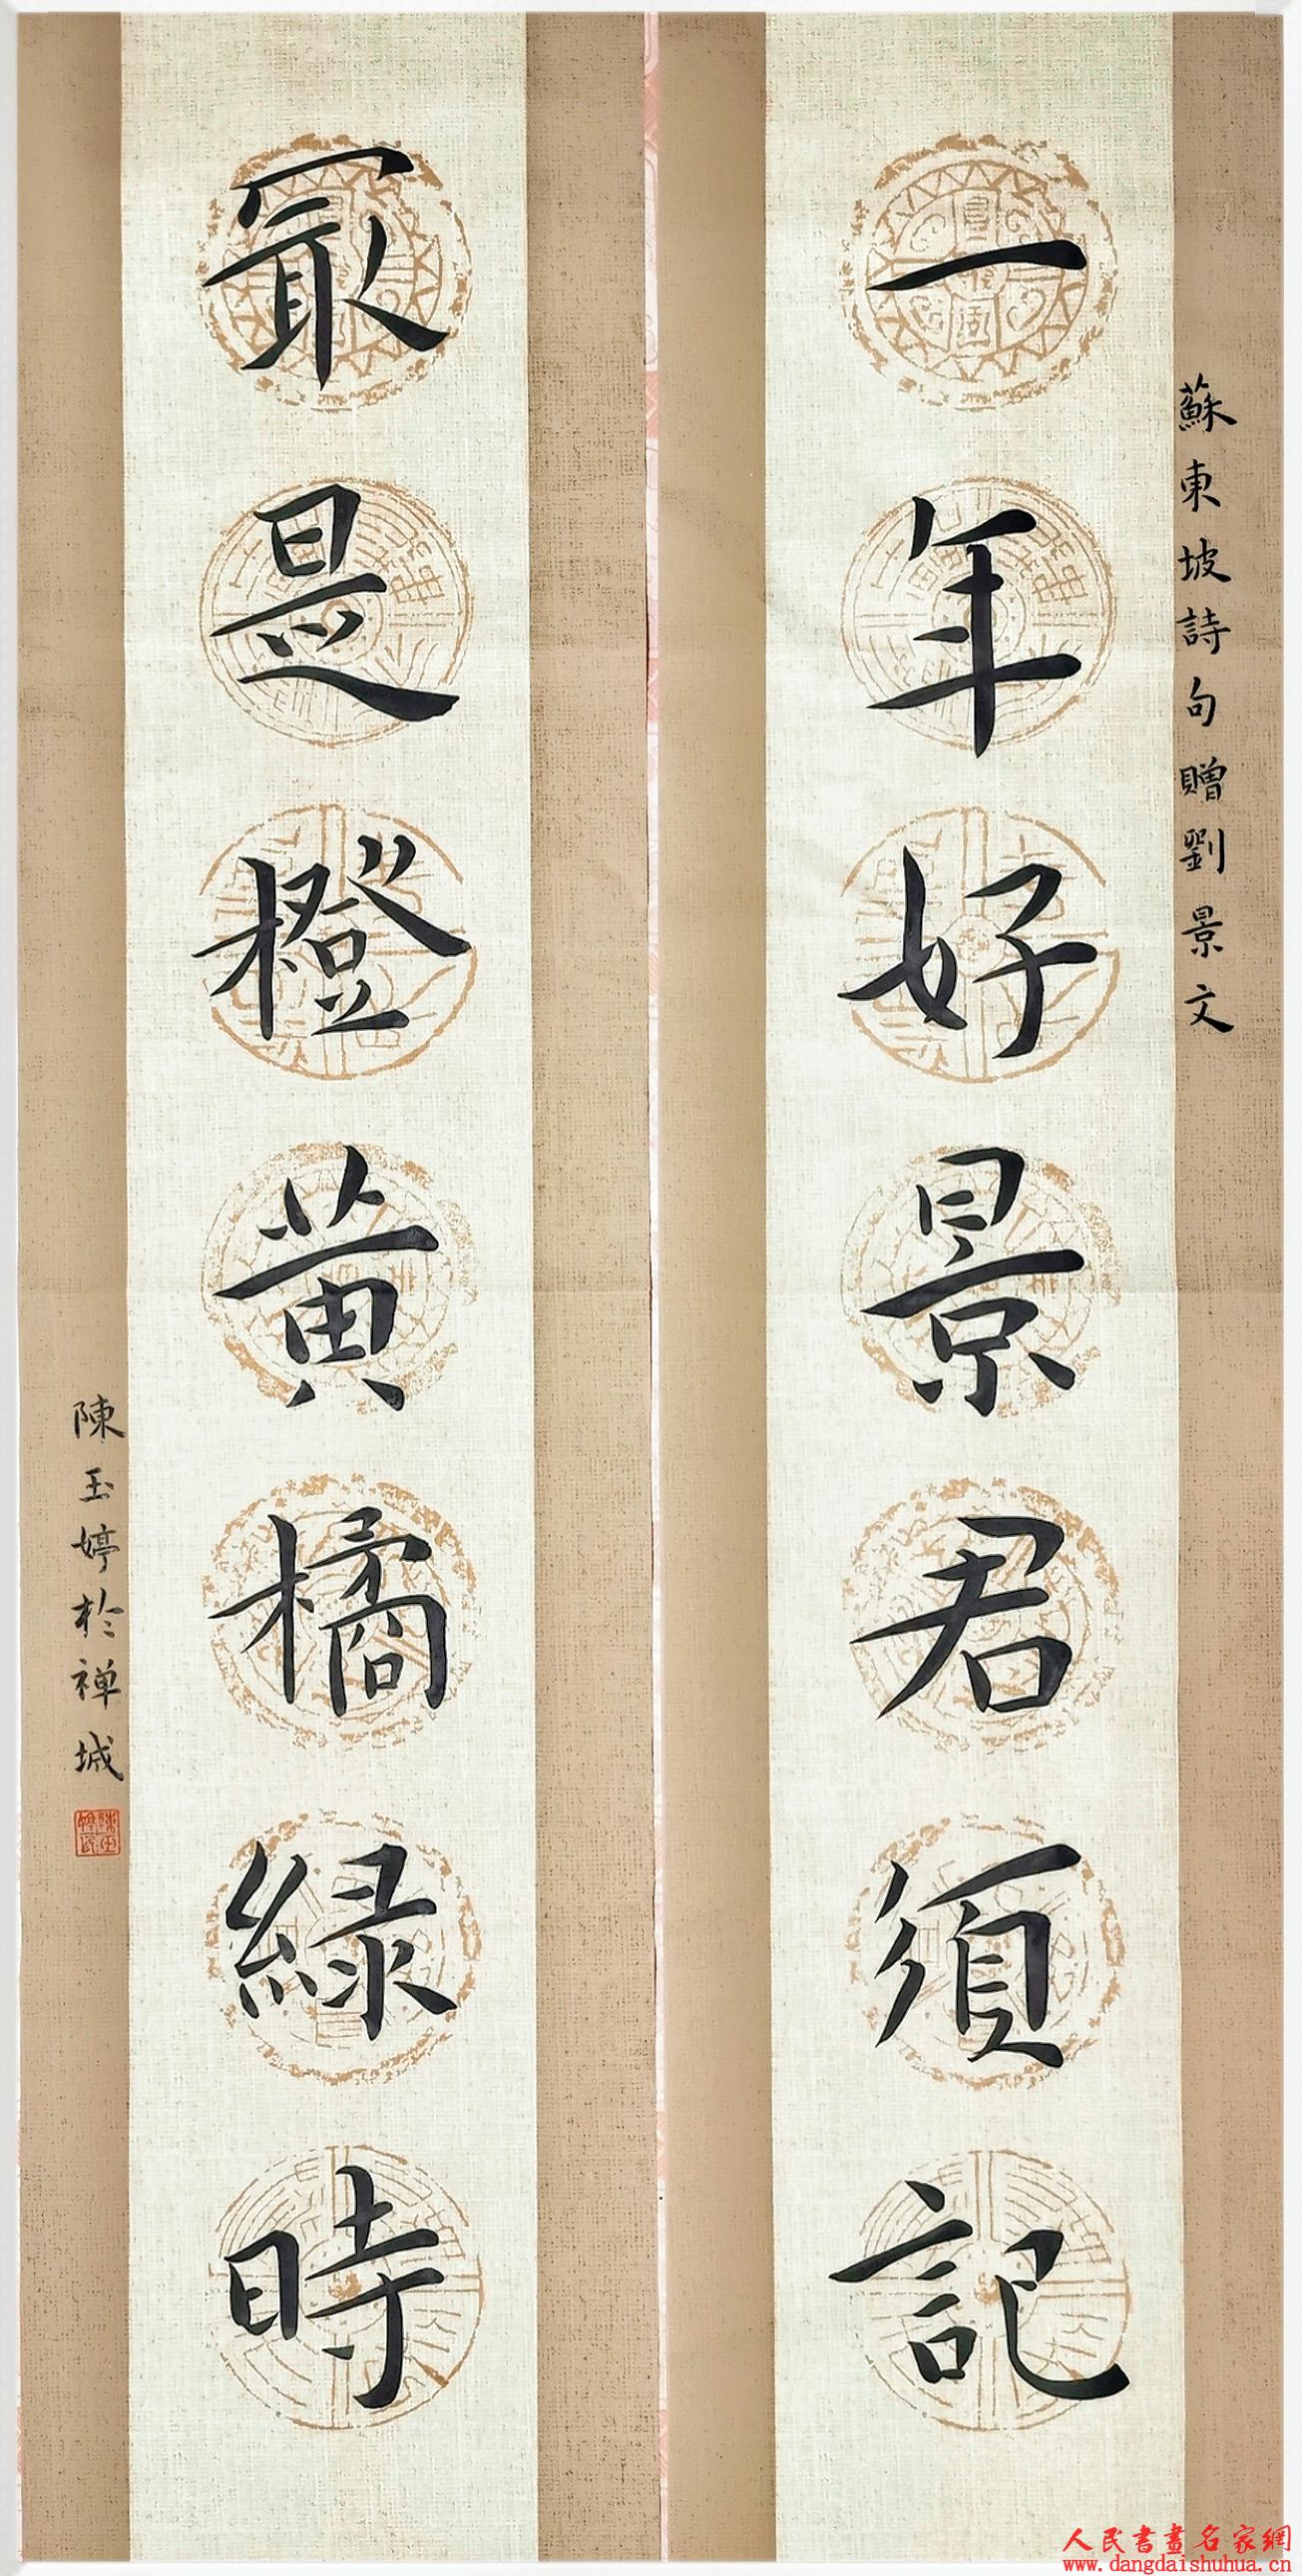 蘇東坡詩句贈劉景文
一年好景君須記
冣是橙黄橘緑時
陳玉婷於禅城
人民書畫名家網
www.dangdaishuhua.cn